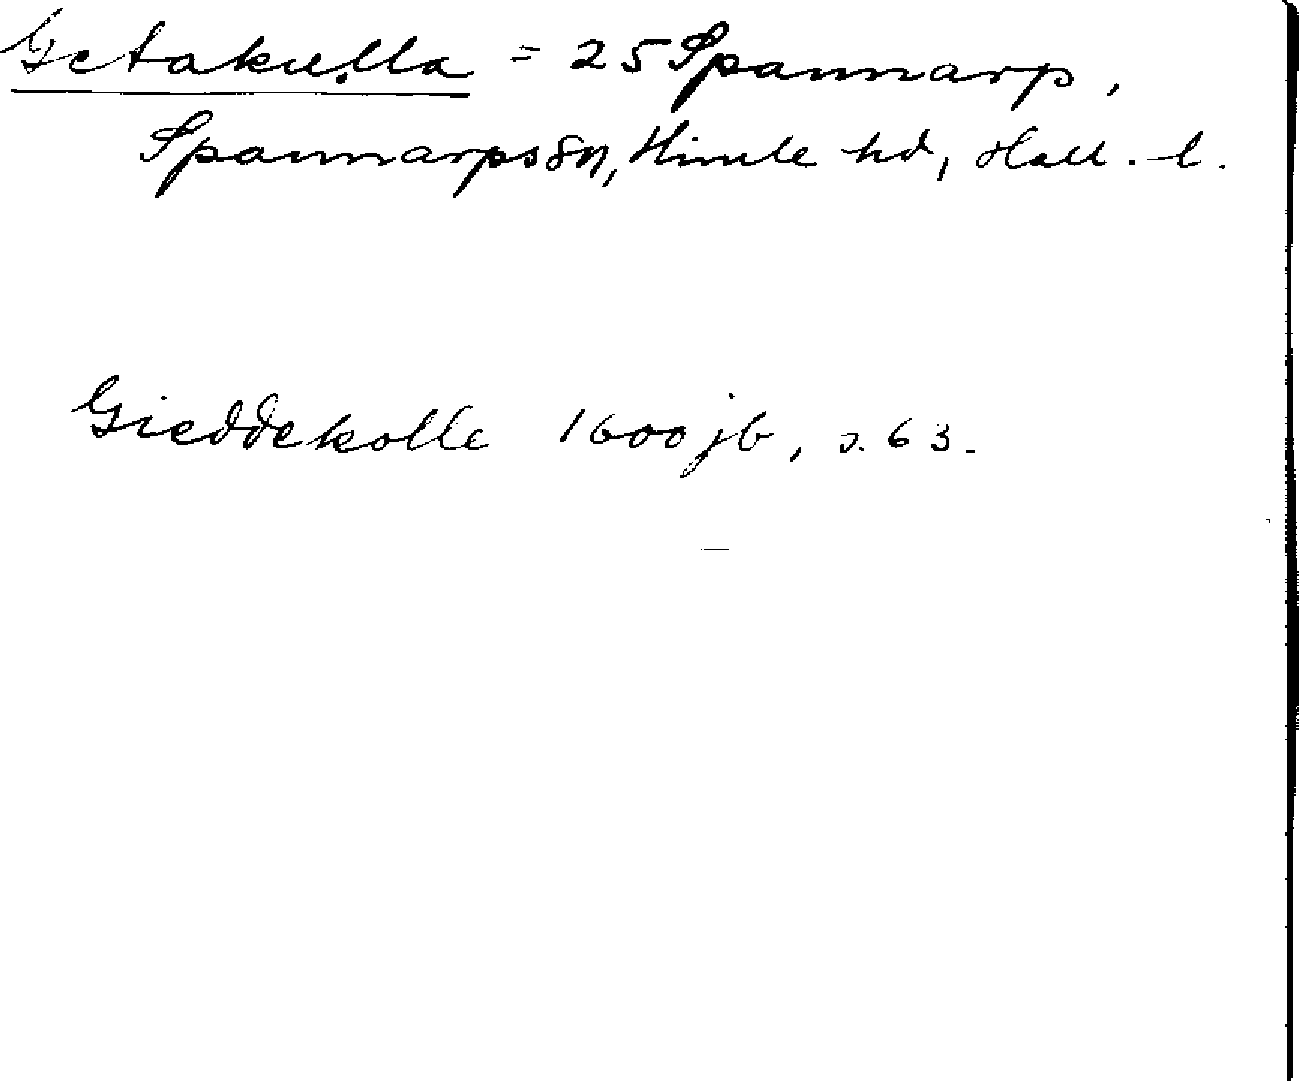 Getakulla = 25 Spannarp,
Spannarps sn, Himle hd, Hall. l.
Gieddekolle 1600 jb, s. 63.